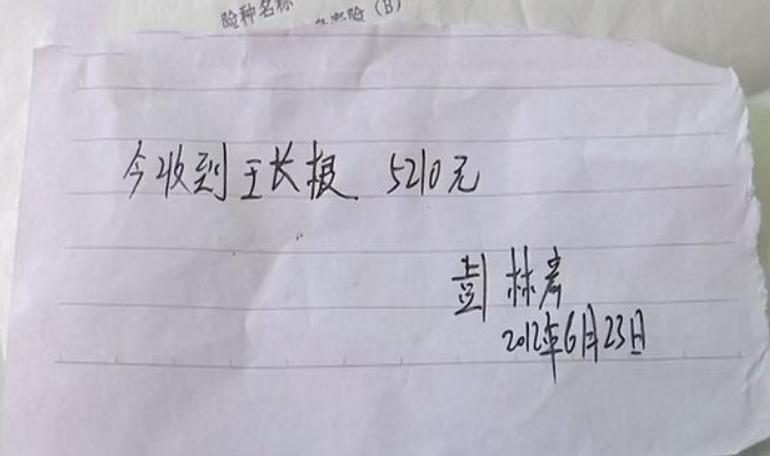 险种名称
险（B）
今收到王长根 5210元
彭林彦
2012年6月23日